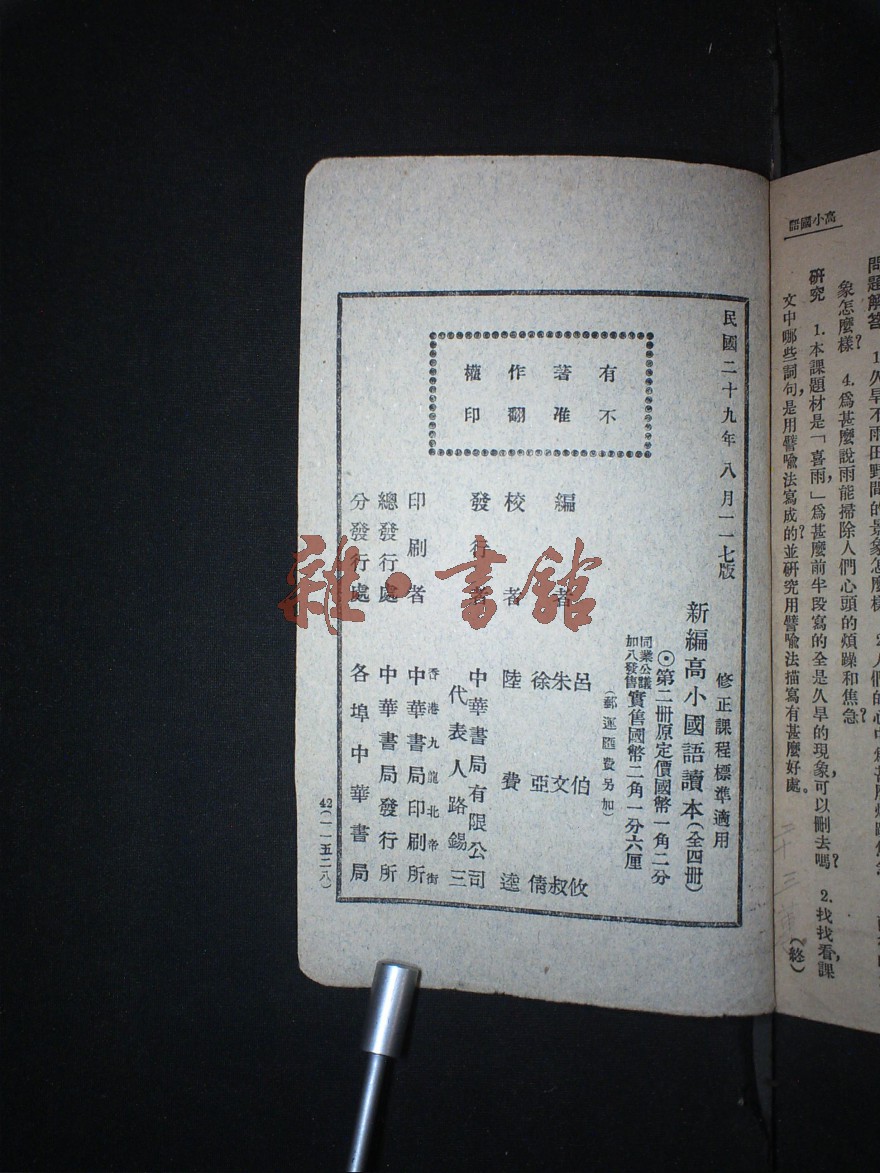 高小國語
問題解答
象怎麼樣? 4.爲甚麼說雨能掃除人們心頭的煩躁和焦急?
研究 1.本課題材是「喜雨」爲甚麼前半段寫的全是久旱的現象,可以刪去嗎? 2.找找看,課
文中哪些詞句是用譬喩法寫成的?並研究用譬喩法描寫有甚麼好處。
(終)
民國二十九年八月一一七版
修正課程標準適用
新編高小國語讀本(全四冊)
⊙第二冊原定價國幣一角二分
同業公議
加八發售
實售國幣二角一分六厘
(郵運匯費另加)
有不
著准
作翻
權印
編者
呂伯攸
朱文叔
徐亞倩
校者
陸費逵
發行者
中華書局有限公司
代表人路錫三
印刷者
香港九龍北帝街
中華書局印刷所
總發行處
中華書局發行所
分發行處
各埠中華書局
42(一一五二八)
雜·書館